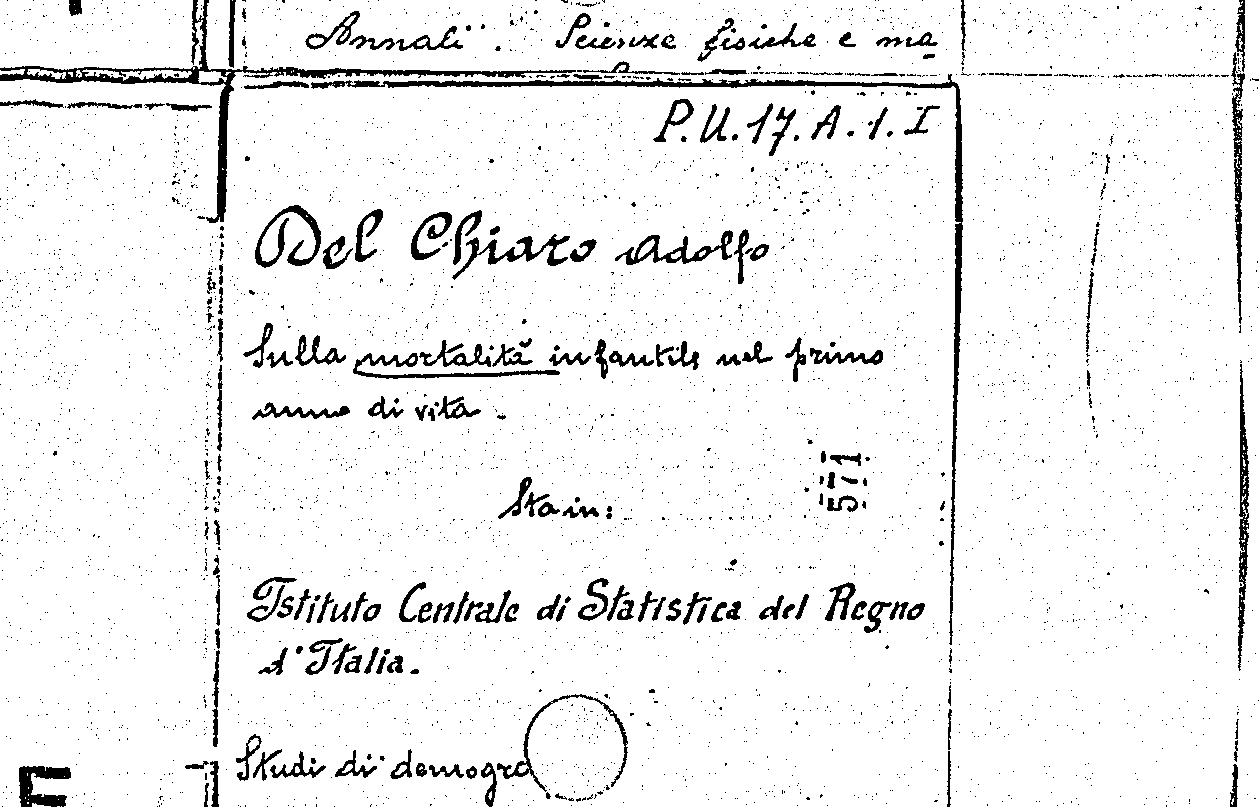 Annali". Scienze fisiche e ma
P.U.17.A.1.I
Del Chiaro Adolfo
Sulla mortalità infantile nel primo
anno di vita.
Sta in:
571
Istituto Centrale di Statistica del Regno
d'Italia.
Studi di demogra
E